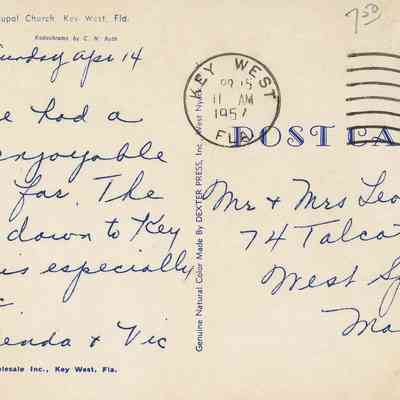 copal Church Key West, Fla.
Kodachrome by C. N. Auth
7 50
Sunday Apr 14
e had a
enjoyable
far. The
down to Key
is especially
enda & Vic
olesale Inc., Key West, Fla.
Genuine Natural Color Made By DEXTER PRESS, Inc., West Nyack
KEY WEST
15
11 AM
1957
FLA
POST CA
Mr & Mrs Leo
74 Talcot
West Sp
Ma